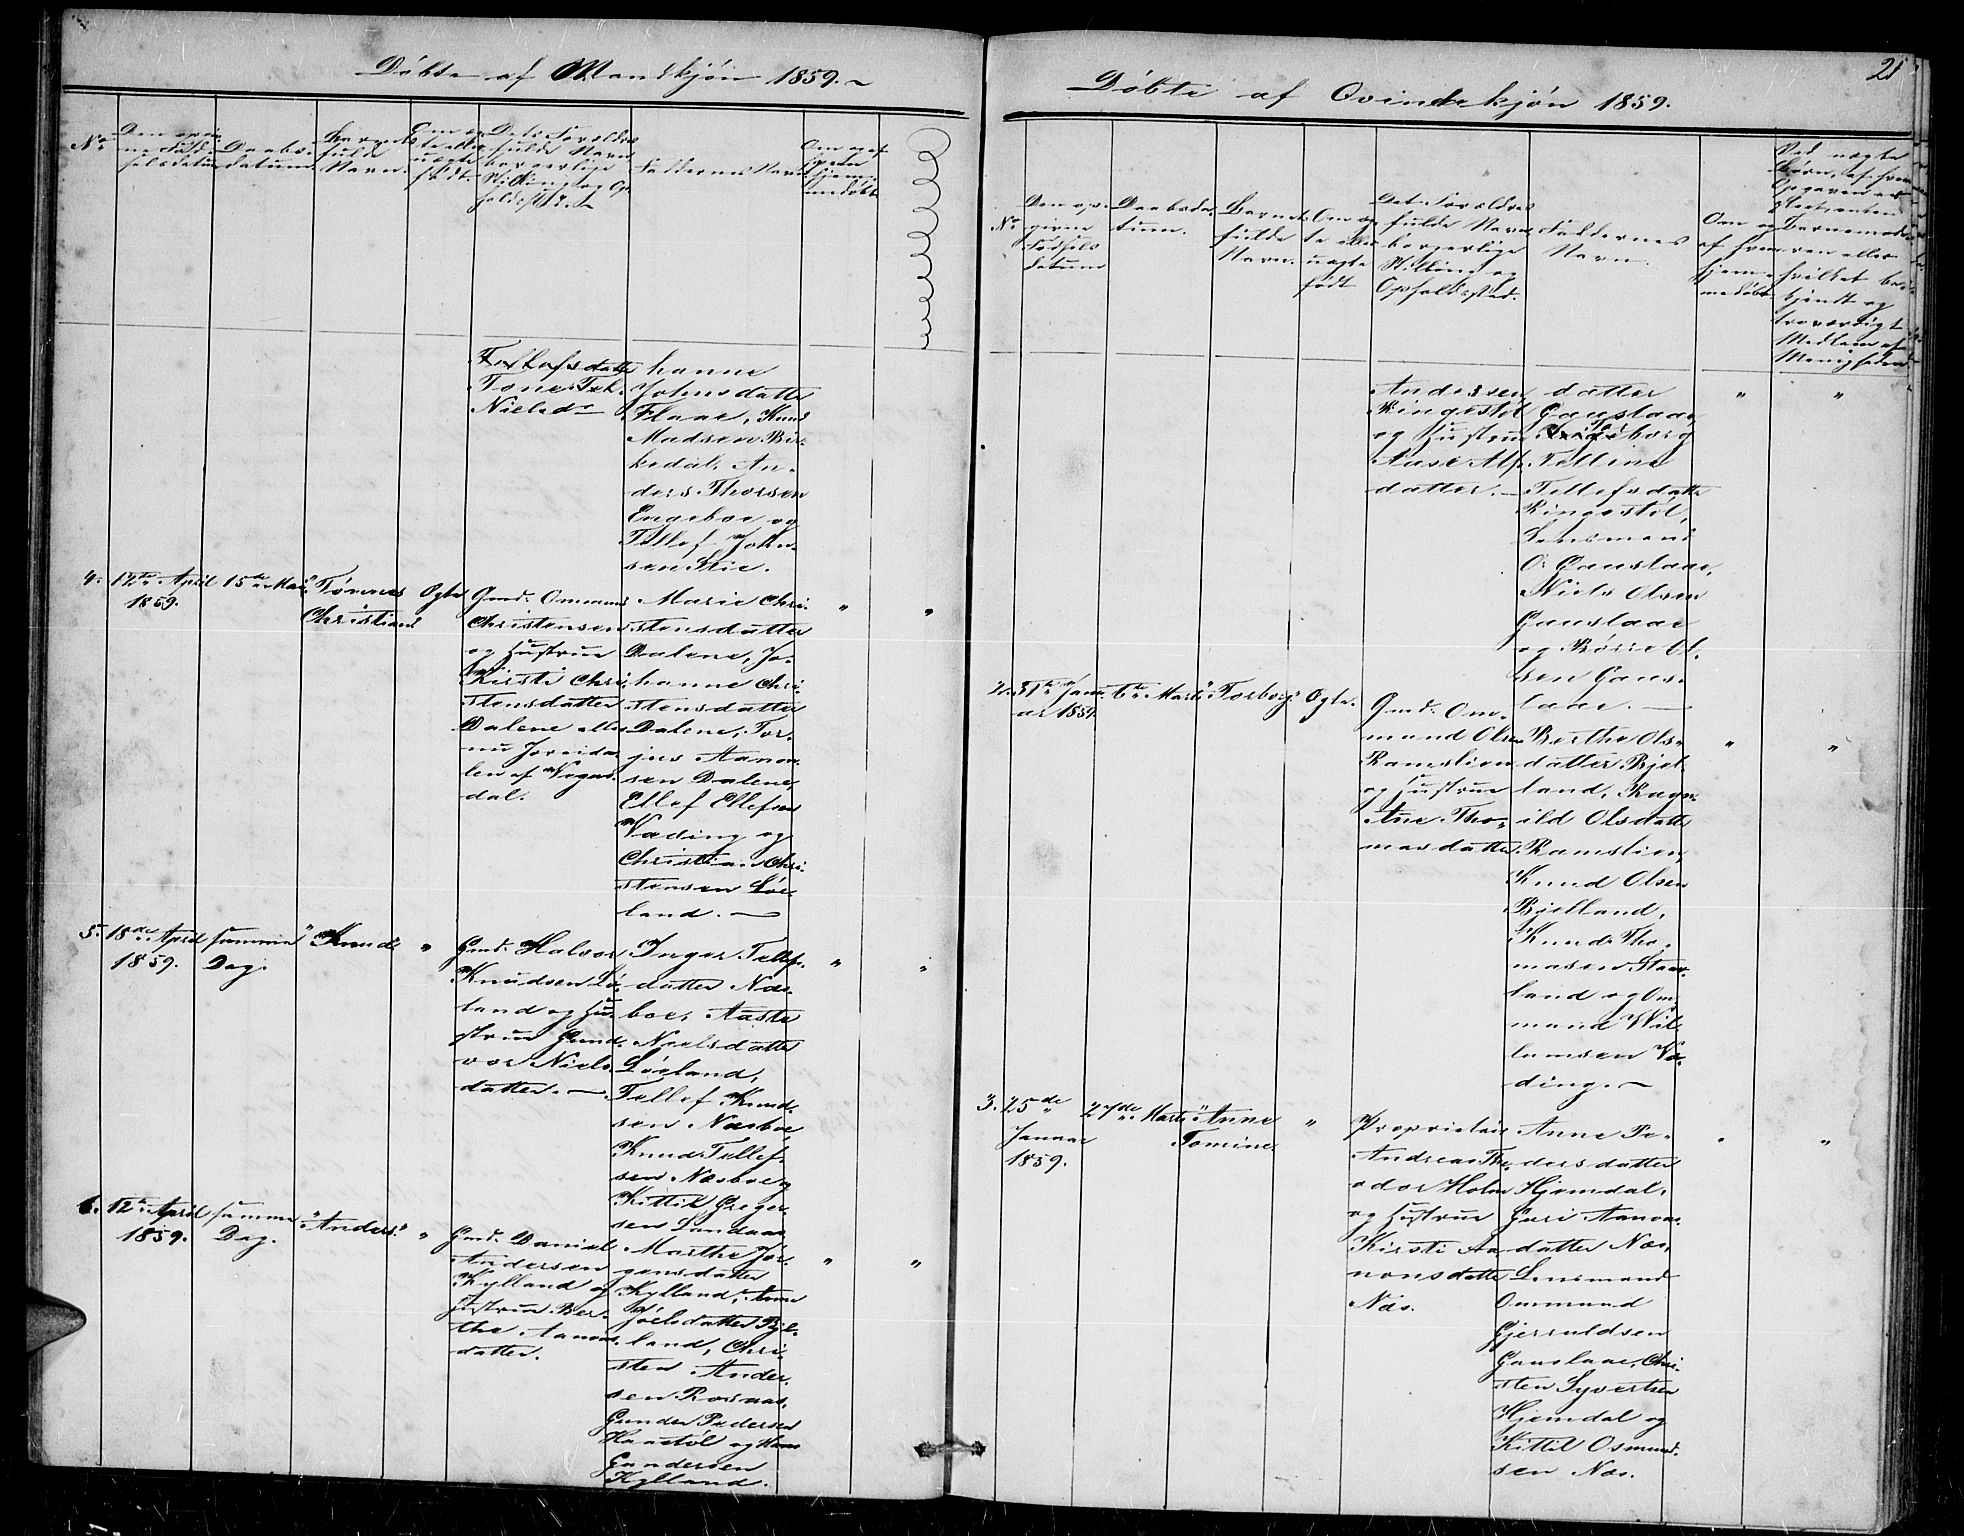 Döbte af Mandkjön 1859.
No
Den opgivne Fødselsdatum
Daabsdatum
Barnets fulde Navn.
Om ægte eller uægte født.
Dets Forældres fulde Navn borgerlige Stilling og Opholdssted.
Faddernes Navn
Tellefsdatter
Tone
Nielsdr
hanne
Johnsdatter
Flaae, Knud
Madsen Bir-
kedal, An-
ders Thorsen
Engeboe og
Tellef John-
sen Stie.
4.
12te April
1859.
15de Mai
Tönnes
Christian
Ogte
Gmd. Ommund
Christensen
og Hustrue
Kirsti Chri-
stensdatter
Dalene eller
nu
af Vegus-
dal.
Marie Chri-
stensdatter
Dalene, Jo-
hanne Chri-
stensdatter
Dalene, Tor-
jus Aanon-
sen Dalene,
Ellef Ellefsen
Væding og
Christian Chri-
stensen Löe-
land.
5.
18de April
1859.
samme
Dag.
Knud
"
Gmd. Halvor
Knudsen Lö-
land og Hu-
strue Gund-
vor Niels-
datter.
Inger Tellefs-
datter Næs-
boe, Aaste
Nielsdatter
Löeland,
Tellef Knud-
sen Næsboe,
Knud Tellef-
sen Næsboe og
Kittil Greger-
sen Landaas
6.
12te April
1859.
samme
Dag.
Anders
"
Gmd. Daniel
Andersen
Kylland og
Hustrue Ber-
the Aanons-
datter.
Marthe Jör-
gensdatter
Kylland, Anne
Joelsdatter Bjel-
land, Chri-
sten Ander-
sen Rosaas,
Gunder Pedersen
Haastöl og
Gundersen
Kylland.
21
Döbte af Qvindekjön 1859.
No
Den opgivne Fødsels datum
Daabsdatum.
Barnets fulde Navn.
Om ægte eller uægte født
Det Forældres fulde Navn borgerlige Stilling og Opholdssted.
Faddernes Navn.
Om og af hvem hjemmedöbt
Ved uægte Börn, af hvem Opgaven er
Barnemoderen eller hvilket bekjendt og troværdigt Medlem af Menigheden
Andersen
Ringestöl
og Hustrue
Aase Alfs-
datter.
datter
Gauslaae,
Ingeborg
Telline
Tellefsdatter
Ringestöl,
Lensmand
O. Gauslaae,
Niels Olsen
Gauslaae
og Börre Ol-
sen Gaus-
laae.
"
"
2.
31te Janu-
ar 1859.
6te Marts
Torborg
Ogte.
Gmd. Om-
mund Olsen
Ramslien
og Hustrue
Ane Tho-
masdatter.
Berthe Ols-
datter Bjel-
land, Ragn-
ild Olsdatter
Ramslien,
Knud Olsen
Bjelland,
Knud Tho-
masen Staar-
land og Om-
mund Wil-
lumsen Væ-
ding.
"
"
3.
25de
Januar
1859.
27de Marts
Anne
Tomine.
"
Proprietair
Andreas The-
odor Holm
og Hustrue
Kirsti Aa-
nonsdatter
Næs.
Anne Pe-
dersdatter
Hjemdal,
Guri Aanons-
datter Næs,
Lensmand
Ommund
Gjeruldsen
Gauslaae, Chri-
sten Syvertsen
Hjemdal og
Kittil Osmund-
sen Næs.
"
"